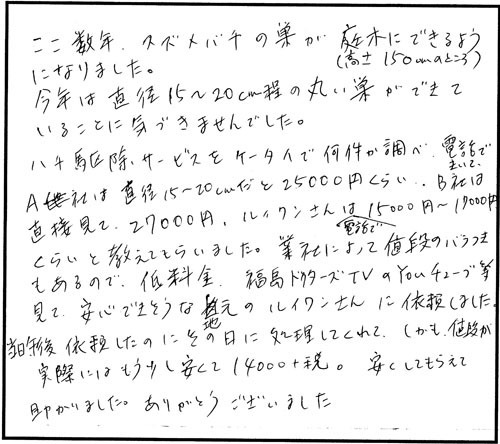 ここ数年、スズメバチの巣が庭木にできるよう
になりました。(高さ150cmのところ)
今年は直径15〜20cm程の丸い巣ができて
いることに気づきませんでした。
ハチ駆除サービスをケータイで何件か調べ、電話で
A社は直径15〜20cmだと25000円くらい、B社は
直接見て、27000円、ルイワンさんは15000円〜17000円
電話で
くらいと教えてもらいました。業社によって値段のバラつき
もあるので、低料金、福島ドクターズTVのYouチューブ等
見て、安心できそうな地元のルイワンさんに依頼しました。
当日午後依頼したのにその日に処理してくれて、しかも、値段が
実際にはもう少し安くて14000+税。安くしてもらえて
助かりました。ありがとうございました